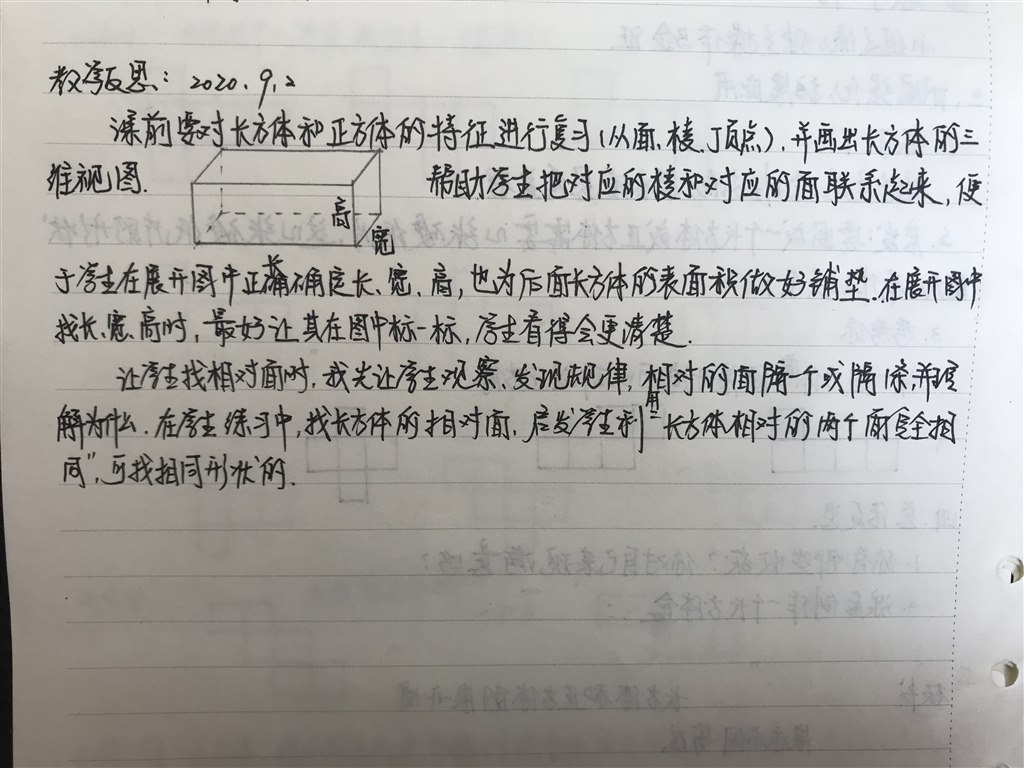 教学反思：2020.9.2
课前要对长方体和正方体的特征进行复习(从面、棱、顶点),并画出长方体的三
维视图.
帮助学生把对应的棱和对应的面联系起来,便
高
宽
长
于学生在展开图中正确确定长、宽、高,也为后面长方体的表面积做好铺垫.在展开图中
找长、宽、高时,最好让其在图中标一标,学生看得会更清楚.
让学生找相对面时,我先让学生观察、发现规律,相对的面隔一个或隔一条,并理
解为什么.在学生练习中,找长方体的相对面,启发学生利用"长方体相对的两个面完全相
同",可找相同形状的.